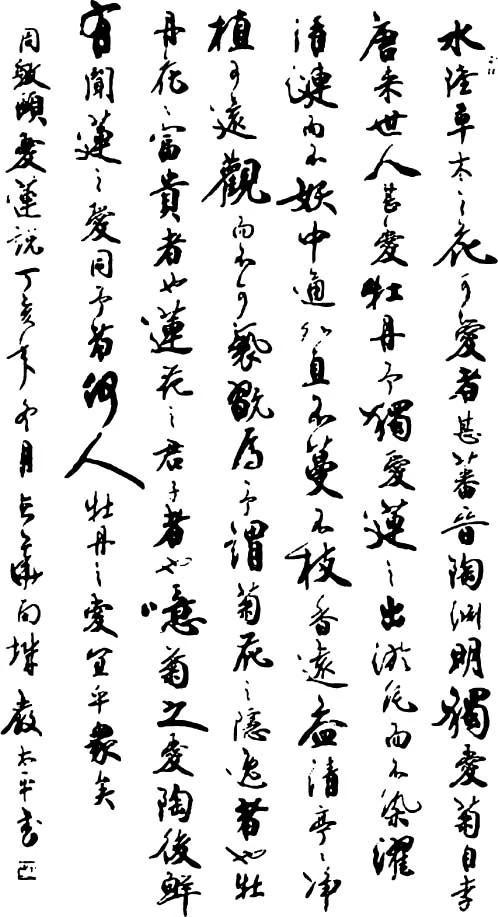 水陸草木之花可愛者甚蕃晉陶渊明獨愛菊自李
唐来世人甚愛牡丹予獨愛蓮之出淤泥而不染濯
清漣而不妖中通外直不蔓不枝香遠益清亭〻净
植可遠觀而不可褻翫焉予謂菊花之隱逸者也牡
丹花之富貴者也蓮花之君子者也噫菊之愛陶後鮮
有聞蓮之愛同予者何人牡丹之愛宜乎衆矣
周敦頤愛蓮說丁亥年冬月太平书